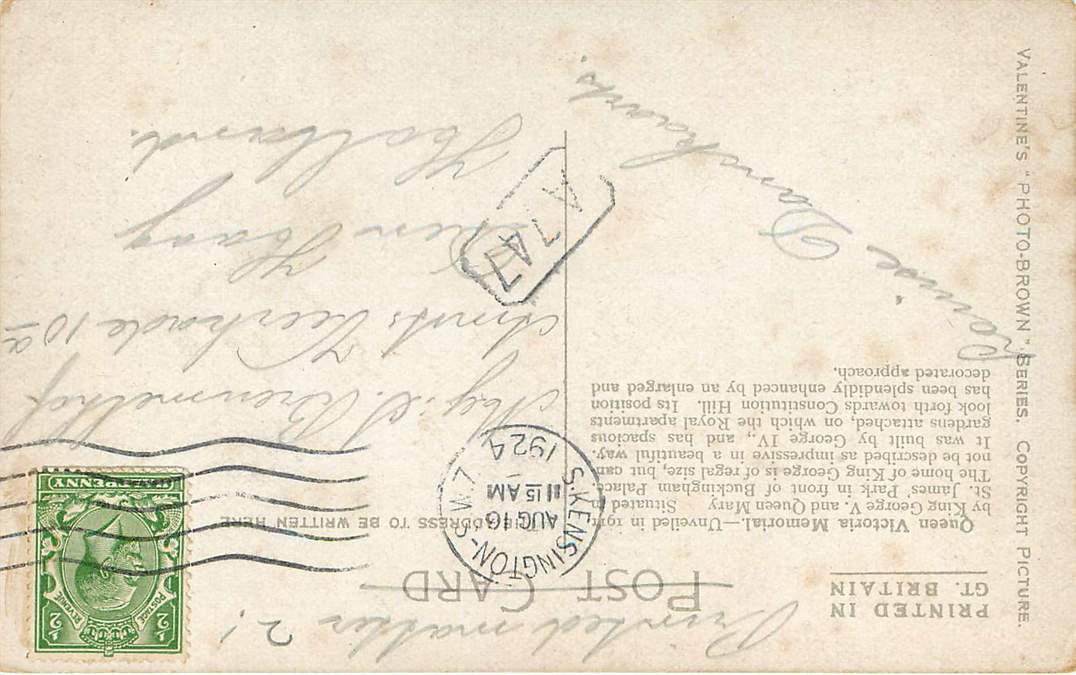 Printed matter 2!
POST CARD
PRINTED IN
GT. BRITAIN
ADDRESS TO BE WRITTEN HERE
Queen Victoria Memorial.—Unveiled in 1911
by King George V. and Queen Mary. Situated
St. James' Park in front of Buckingham Palace.
The home of King George is of regal size, but can
not be described as impressive in a beautiful way.
It was built by George IV., and has spacious
gardens attached, on which the Royal apartments
look forth towards Constitution Hill. Its position
has been splendidly enhanced by an enlarged and
decorated approach.
Danmhaart.
10a
Den Haag
Holland.
S. KENSINGTON-S.W.7
AUG 16
11 15 AM
1924
A 747
POSTAGE
REVENUE
½ ½
PENNY
VALENTINE'S "PHOTO-BROWN" SERIES. COPYRIGHT PICTURE.